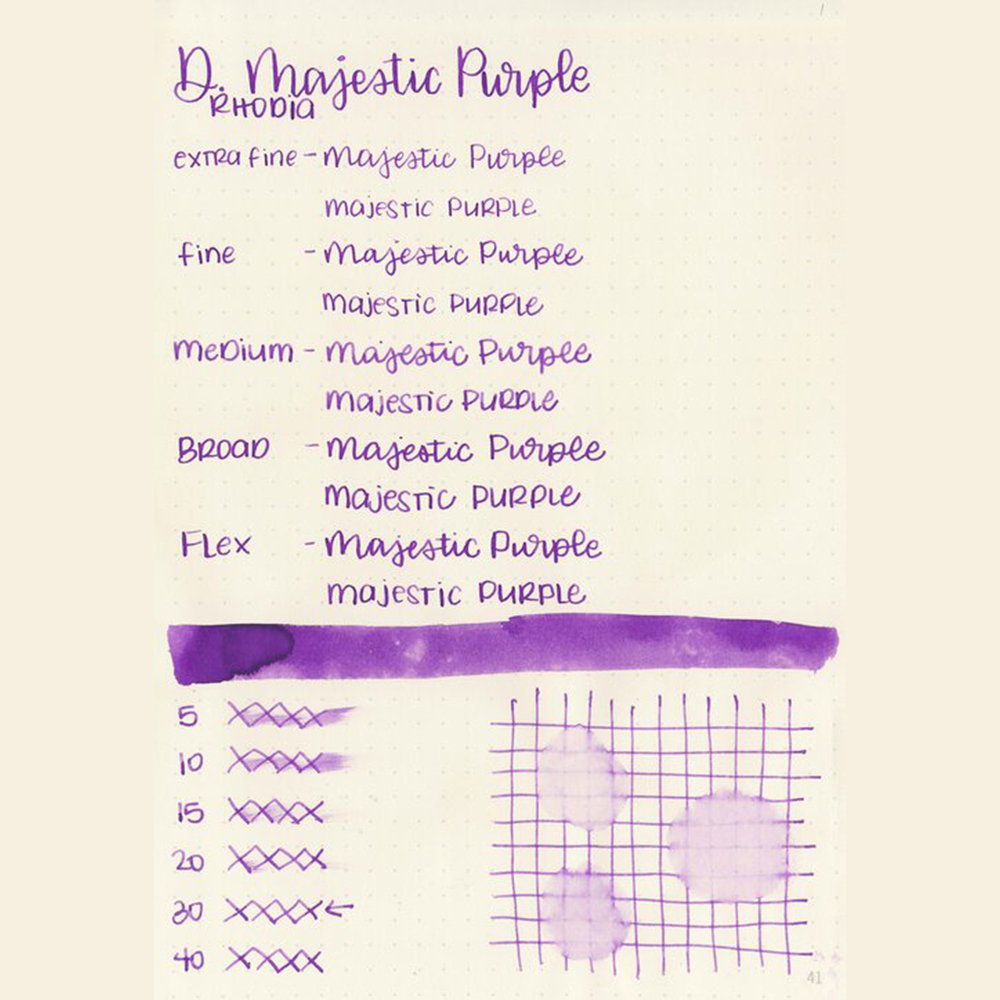 D. Majestic Purple
RHODIA
extra fine - Majestic Purple
majestic PURPLE
fine - Majestic Purple
majestic PURPLE
medium - Majestic Purple
majestic PURPLE
BROAD - Majestic Purple
majestic PURPLE
FLex - Majestic Purple
majestic PURPLE
5 XXXX
10 XXXX
15 XXXX
20 XXXX
30 XXXX ←
40 XXXX
41